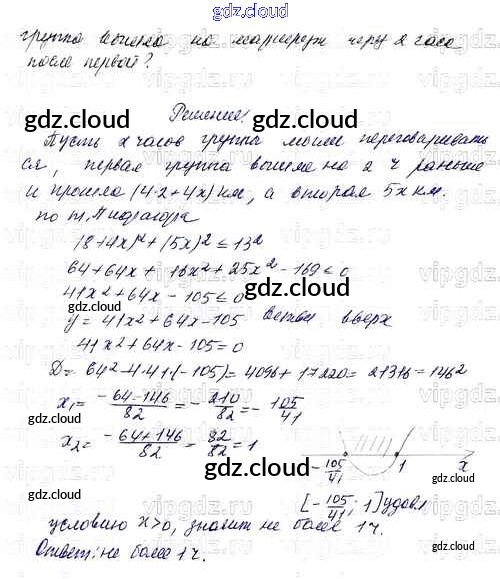 gdz.cloud
группа вышла на маршрут через 2 часа
после первой?
gdz.cloud
Решение:
gdz.cloud
Пусть x часов группа могли переговаривать
ся, первая группа вышла на 2 ч раньше
и прошла (4·2+4x) км, а вторая 5x км.
по т. Пифагора
(8+4x)²+(5x)² ≤ 13²
64+64x+16x²+25x²-169≤0
41x²+64x-105≤0
gdz.cloud
gdz.cloud
y=41x²+64x-105 ветви вверх
41x²+64x-105=0
D=64²-4·41·(-105)=4096+17220=21316=146²
gdz.cloud
x₁= -64-146/82 = -210/82 = -105/41
gdz.cloud
x₂= -64+146/82 = 82/82 = 1
gdz.cloud
-105/41 1 x
[-105/41; 1] удовл
условию x>0, значит не более 1 ч.
gdz.cloud
Ответ: не более 1 ч.
gdz.cloud
gdz.cloud